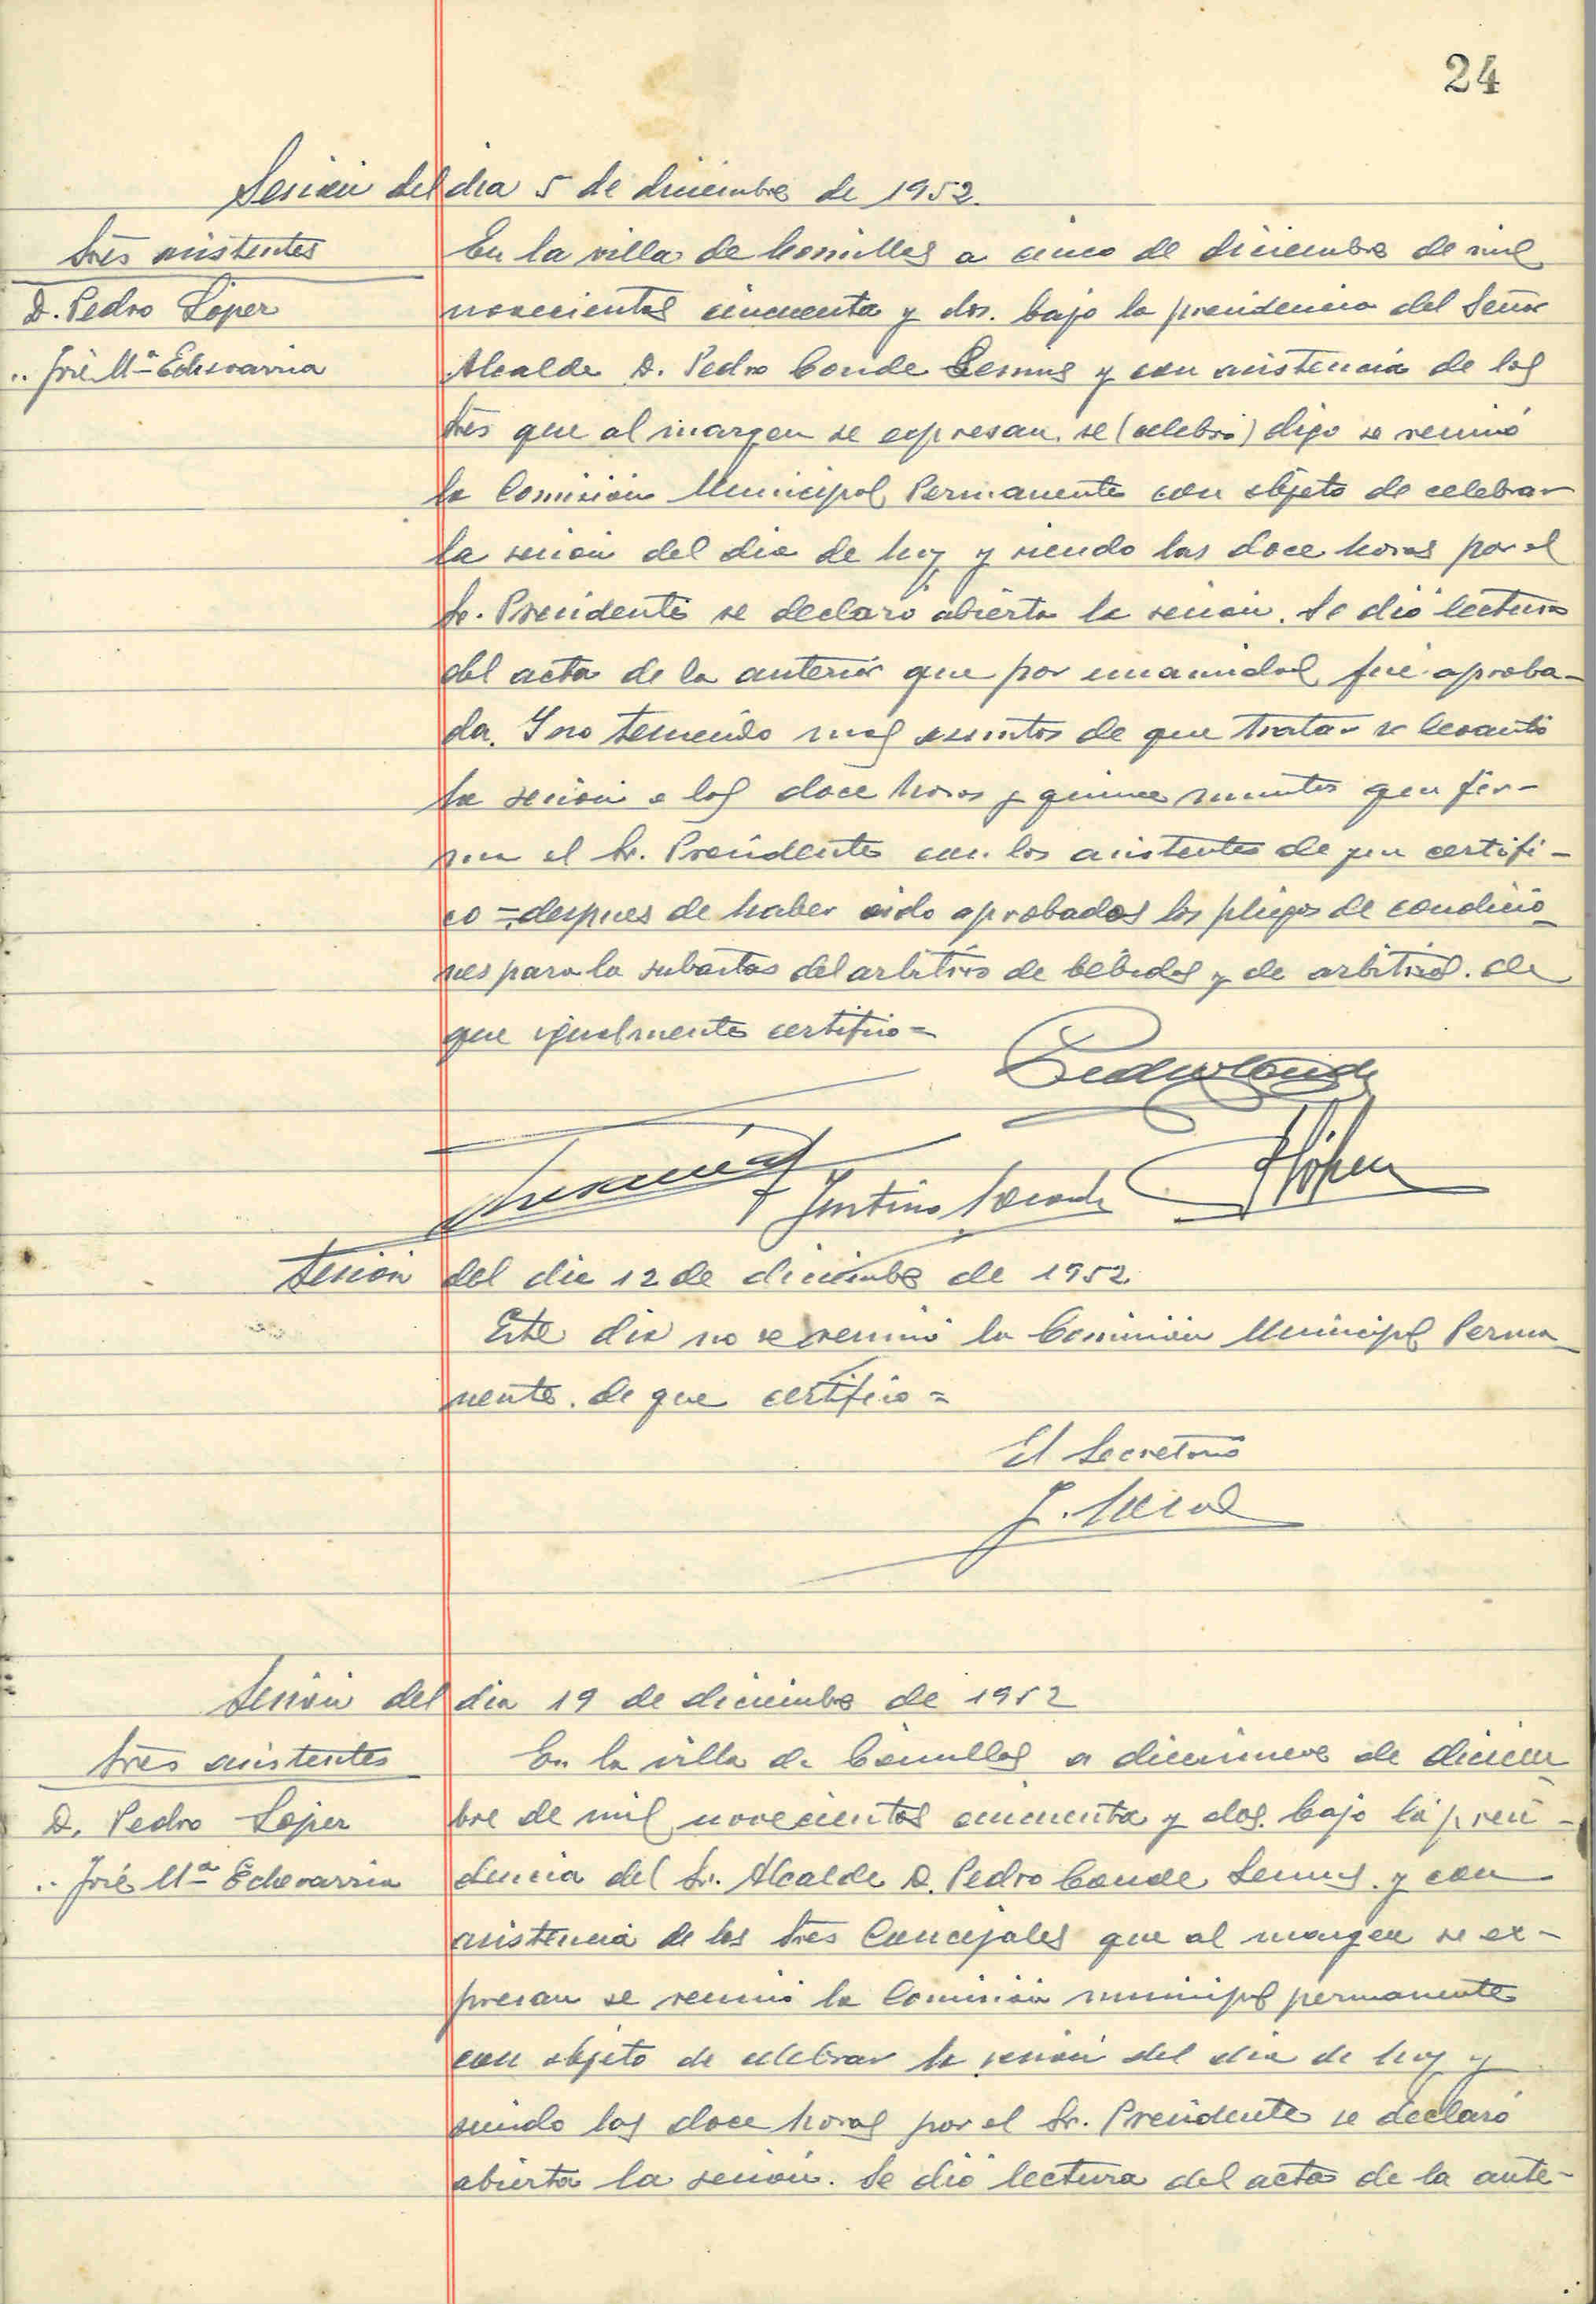 24
Sesión del dia 5 de diciembre de 1952.
Sres asistentes
D. Pedro López
.. José Mª Echevarria
En la villa de Comillas a cinco de diciembre de mil
novecientos cincuenta y dos. bajo la presidencia del Señor
Alcalde D. Pedro Conde Lemus y con asistencia de los
Sres que al margen se expresan. se (celebró) digo se reunió
la Comisión Municipal Permanente con objeto de celebrar
la sesion del dia de hoy y siendo las doce horas por el
Sr. Presidente se declaró abierta la sesion. Se dió lectura
del acta de la anterior que por unamidad fué aproba-
da. Y no teniendo mas asuntos de que tratar se levantó
la sesión a las doce horas y quince minutos que fir-
ma el Sr. Presidente con los asistentes de que certifi-
co =despues de haber sido aprobados los pliegos de condicio-
nes para la subastas del arbitrio de bebidas y de arbitrios. de
que igualmente certifico =
Pedro Conde
Justino
P López
Sesión del dia 12 de diciembre de 1952
Este dia no se reunió la Comisión Municipal Perma-
nente. de que certifico =
El Secretario
J.
Sesión del dia 19 de diciembre de 1952
Sres asistentes
D. Pedro Lopez
.. José Mª Echevarria
En la villa de Comillas a diecinueve de diciem-
bre de mil novecientos cincuenta y dos. bajo la presi-
dencia del Sr. Alcalde D. Pedro Conde Lemus. y con
asistencia de los Sres Concejales que al margen se ex-
presan se reunió la Comisión municipal permanente
con objeto de celebrar la sesión del dia de hoy y
siendo las doce horas por el Sr. Presidente se declaró
abierta la sesión. Se dió lectura del acta de la ante-